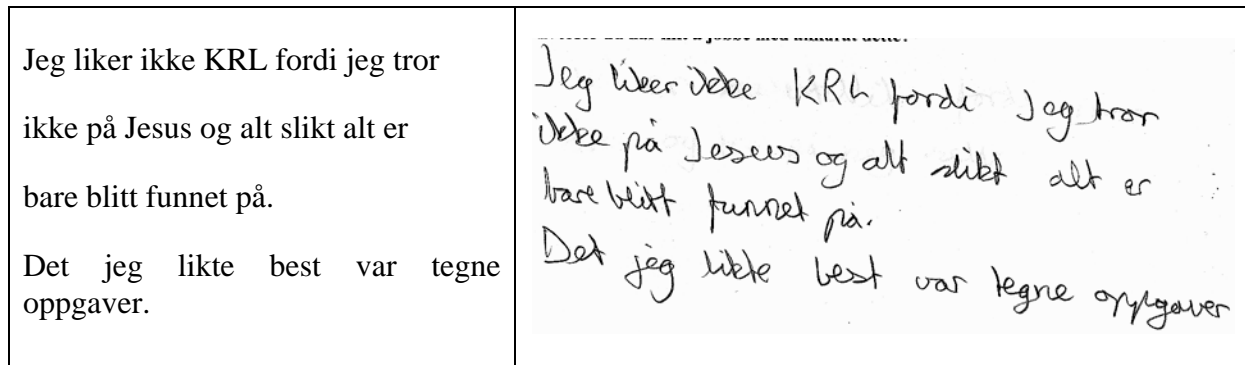 Jeg liker ikke KRL fordi jeg tror
ikke på Jesus og alt slikt alt er
bare blitt funnet på.
Det jeg likte best var tegne
oppgaver.
Jeg liker ikke KRL fordi Jeg tror
ikke på Jesus og alt slikt alt er
bare blitt funnet på.
Det jeg likte best var tegne oppgaver